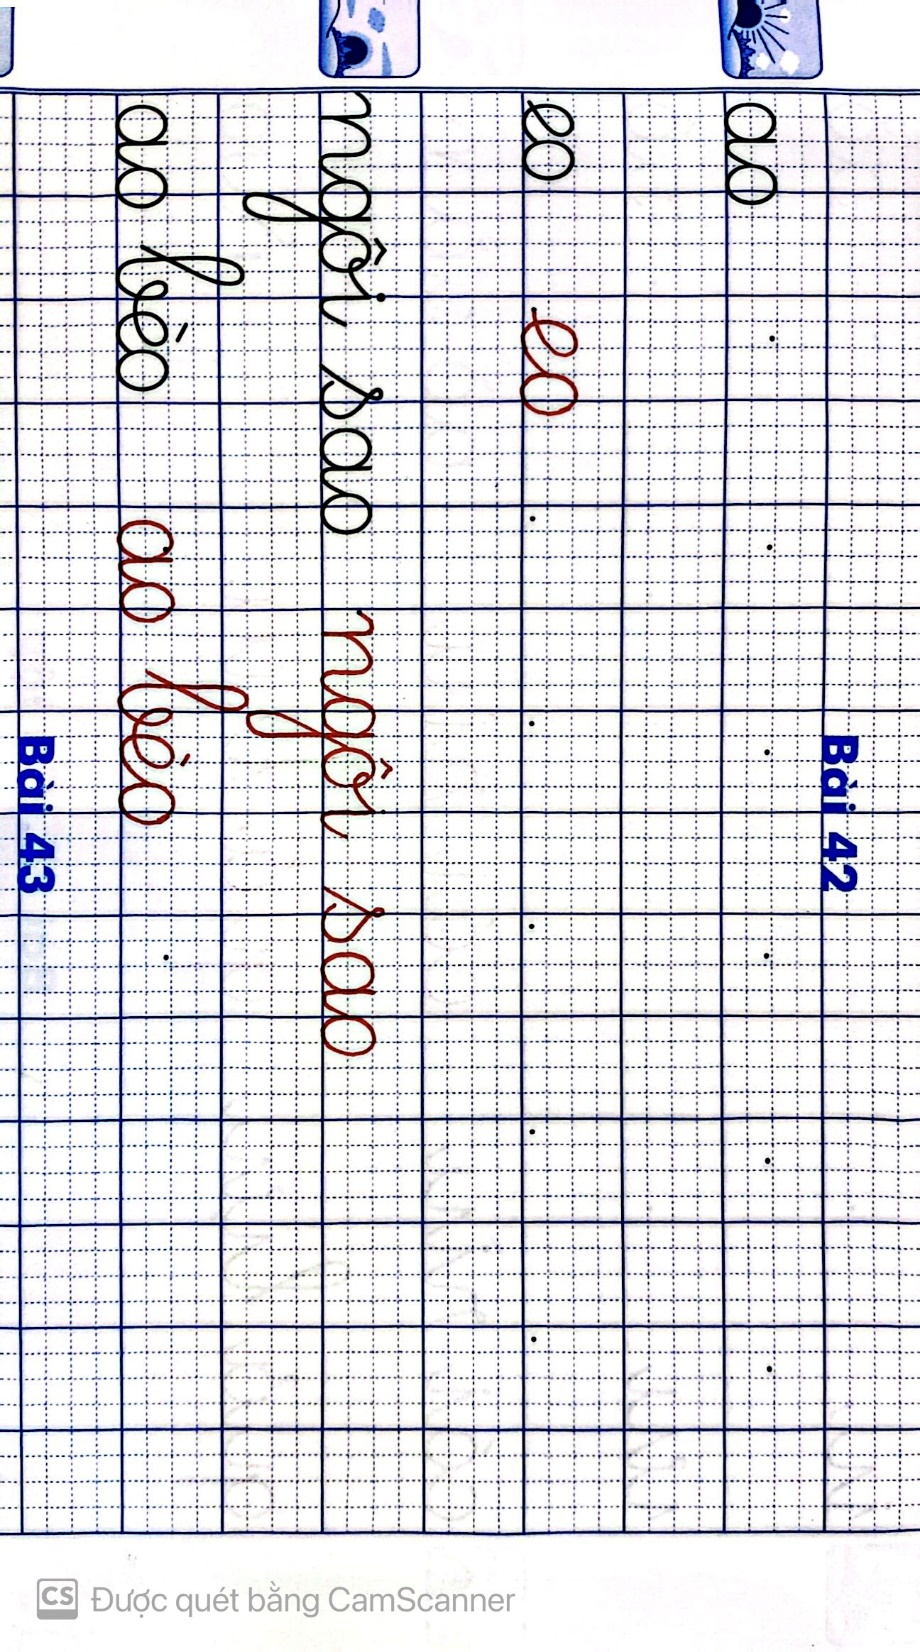 Bài 42
ao
eo eo
ngôi sao ngôi sao
ao bèo ao bèo
Bài 43
CS Được quét bằng CamScanner